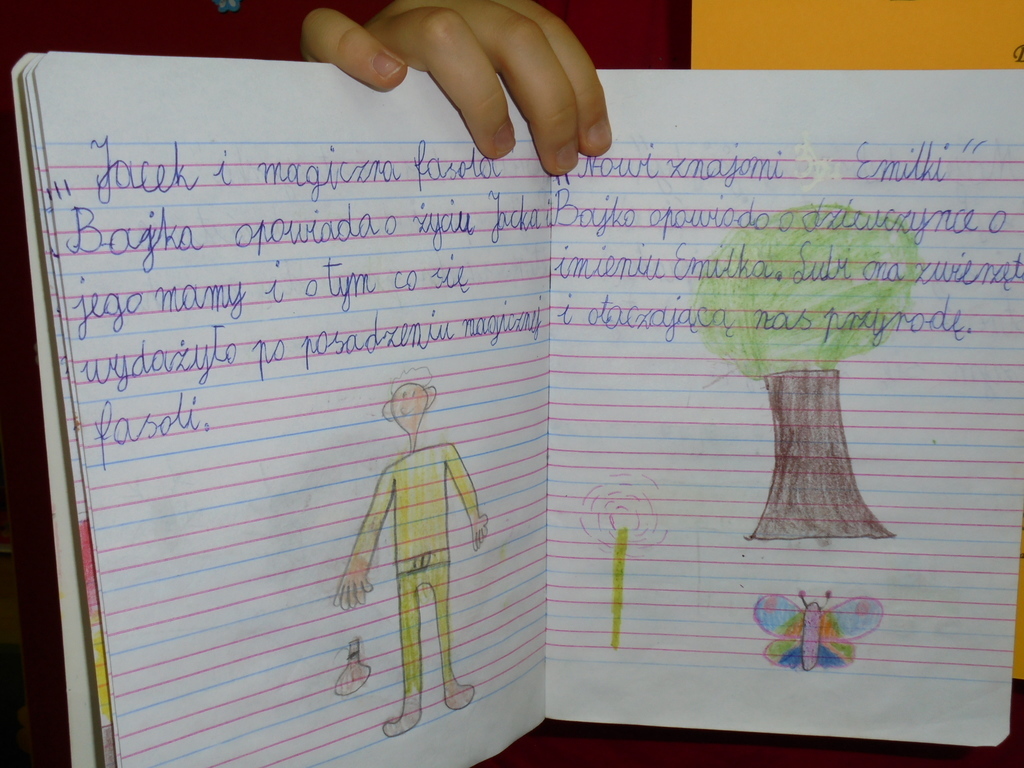 „Jacek i magiczna fasola
Bajka opowiada o życiu Jacka i
jego mamy i o tym co się
wydażyło po posadzeniu magicznej
fasoli.
„Nowi znajomi Emilki”
Bajka opowiada o dziewczynce o
imieniu Emilka. Lubi ona zwierzęta
i otaczającą nas przyrodę.